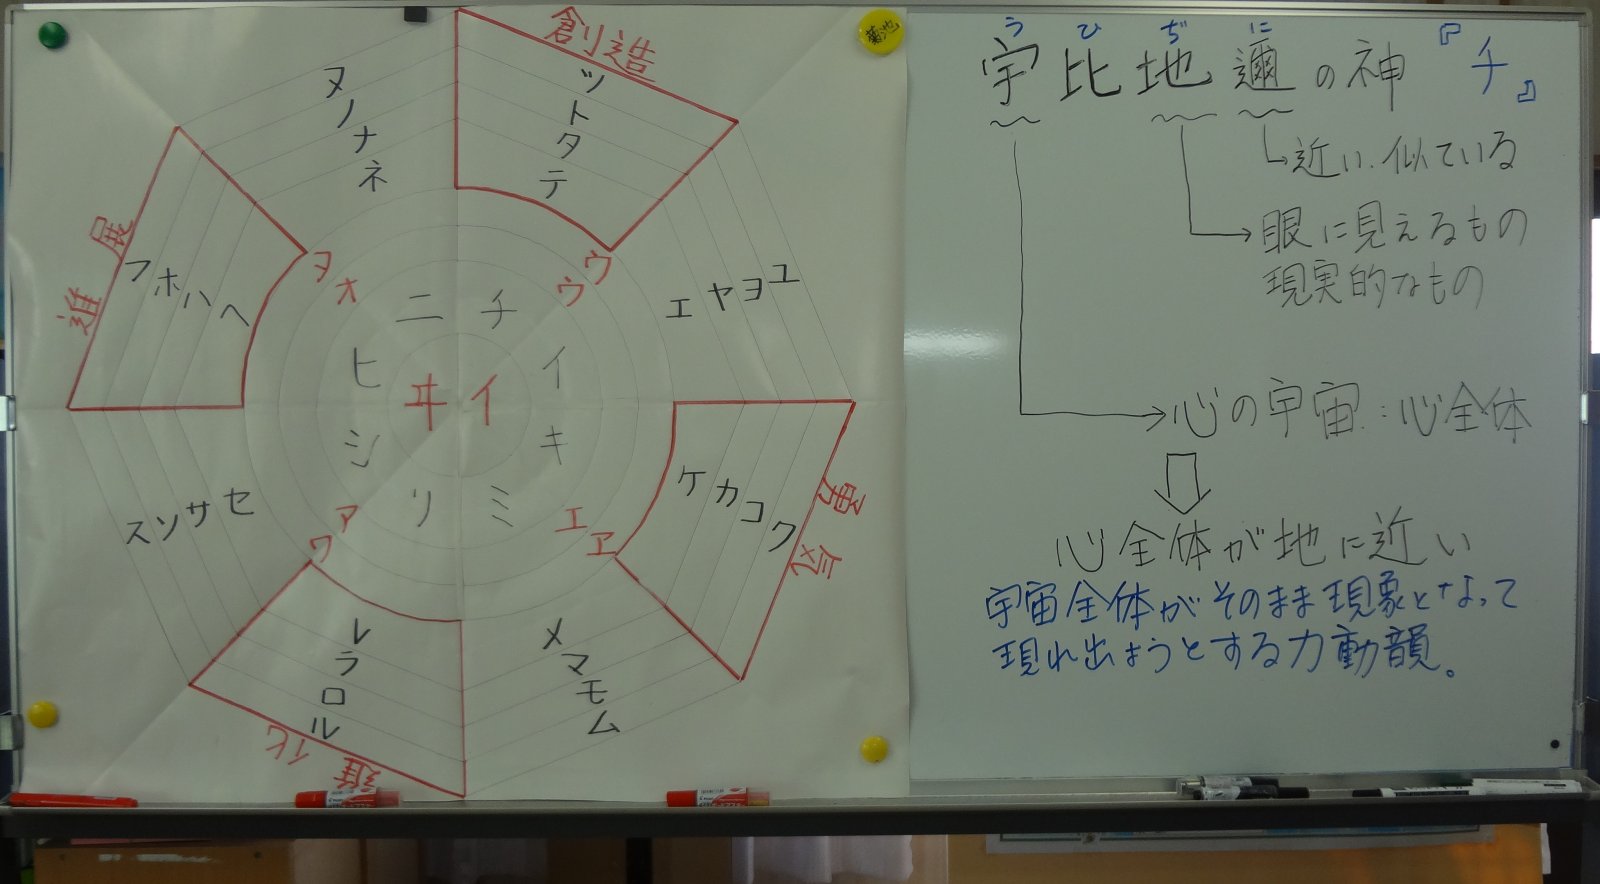 創造
ツトタテ
ヌノナネ
エヤヨユ
進展
フホハヘ
ヲオ
ウウ
ニチ
ヒイ
ヰイ
シキ
リミ
ケカコク
勇気
スソサセ
ワア
エヱ
レラロル
メマモム
進化
菊池
うひぢに
宇比地邇の神『チ』
近い.似ている
眼に見えるもの
現実的なもの
心の宇宙:心全体
心全体が地に近い
宇宙全体がそのまま現象となって
現れ出ようとする力動韻。